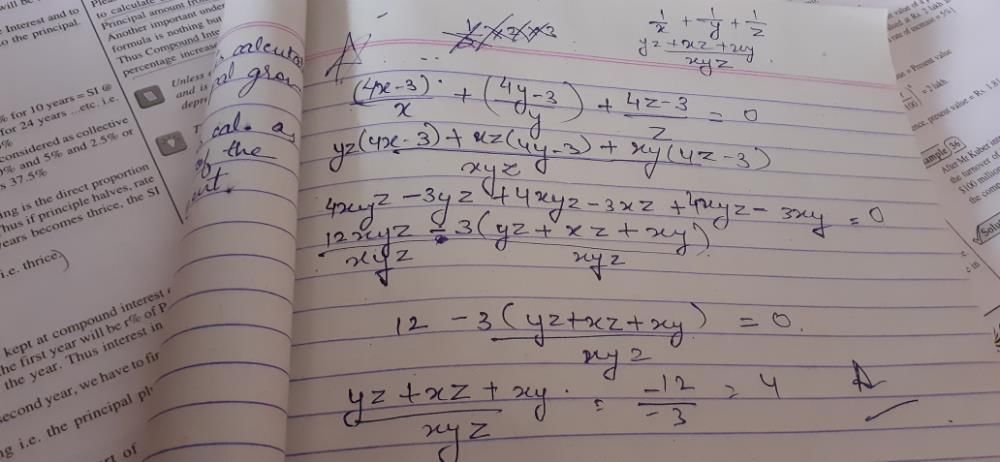 Interest and to
o the principal.
% for 10 years = SI @
for 24 years ...etc. i.e.
considered as collective
% and 5% and 2.5% or
s 37.5%
ing is the direct proportion
Thus if principle halves, rate
ears becomes thrice, the SI
i.e. thrice)
kept at compound interest
the first year will be r% of P
the year. Thus interest in
second year, we have to fir
ng i.e. the principal pl
to calculate
Principal amount
Another important under
formula is nothing but
Thus Compound Inte
percentage increase
Unless
and is
depr
calcula
cal. a
of the
A
1/x + 1/y + 1/z
yz + xz + xy / xyz
(4x-3)/x + (4y-3)/y + 4z-3/z = 0
yz(4x-3) + xz(4y-3) + xy(4z-3) / xyz
4xyz - 3yz + 4xyz - 3xz + 4xyz - 3xy = 0
12xyz/xyz - 3(yz + xz + xy)/xyz
12 - 3(yz+xz+xy)/xyz = 0.
yz + xz + xy / xyz = -12/-3 = 4 A
= Present value
ample 36
After Mr Kuber
the turnover
$100 million
the com
Solu